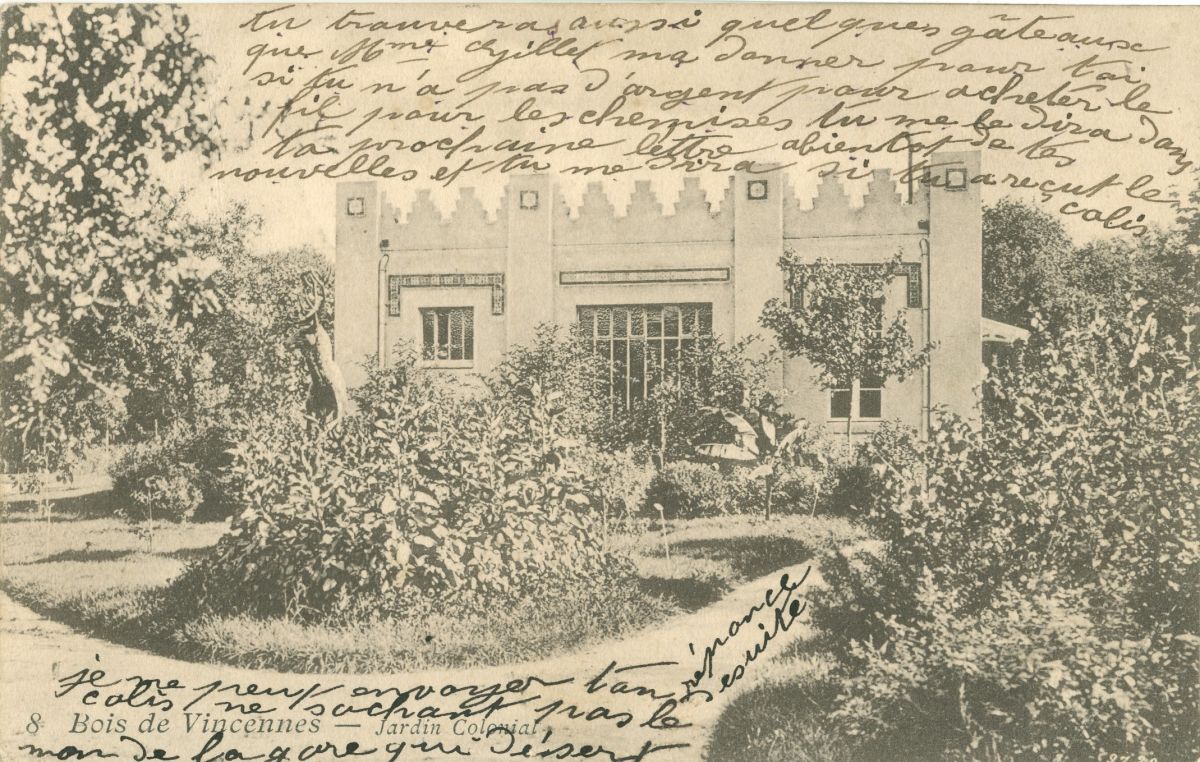 tu trouvera aussi quelques gâteaux
que Mme ma donner pour toi
si tu n'a pas d'argent pour acheter le
fil pour les chemises tu me le dira dans
ta prochaine lettre abientot de tes
nouvelles et tu me dira si tu a reçut le
colis
réponce
desuite
je ne peux envoyer ton
colis ne sachant pas le
8 Bois de Vincennes — Jardin Colonial
mon de la gare qui désert